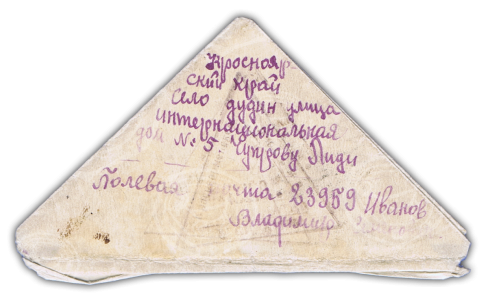 Краснояр
ский край
село дудин улица
интернациональная
дом № 5. Чупрову Лиди
Полевая почта 23959 Иванов
Владимир